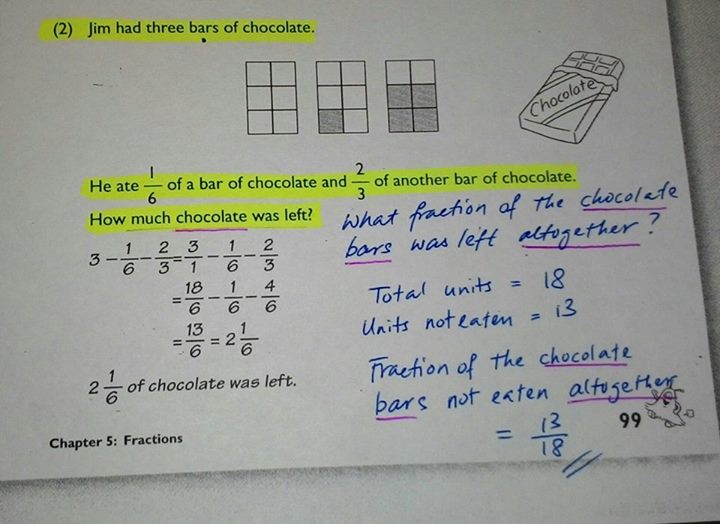 (2) Jim had three bars of chocolate.
Chocolate
He ate 1/6 of a bar of chocolate and 2/3 of another bar of chocolate.
How much chocolate was left?
3 - 1/6 - 2/3 = 3/1 - 1/6 - 2/3
= 18/6 - 1/6 - 4/6
= 13/6 = 2 1/6
2 1/6 of chocolate was left.
What fraction of the chocolate
bars was left altogether?
Total units = 18
Units not eaten = 13
Fraction of the chocolate
bars not eaten altogether
= 13/18
99
Chapter 5: Fractions